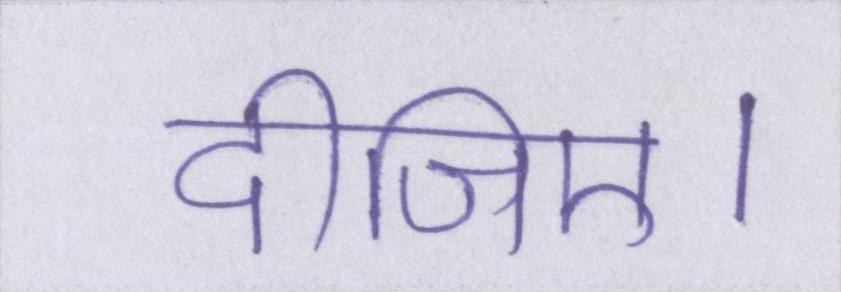 दीजिए।